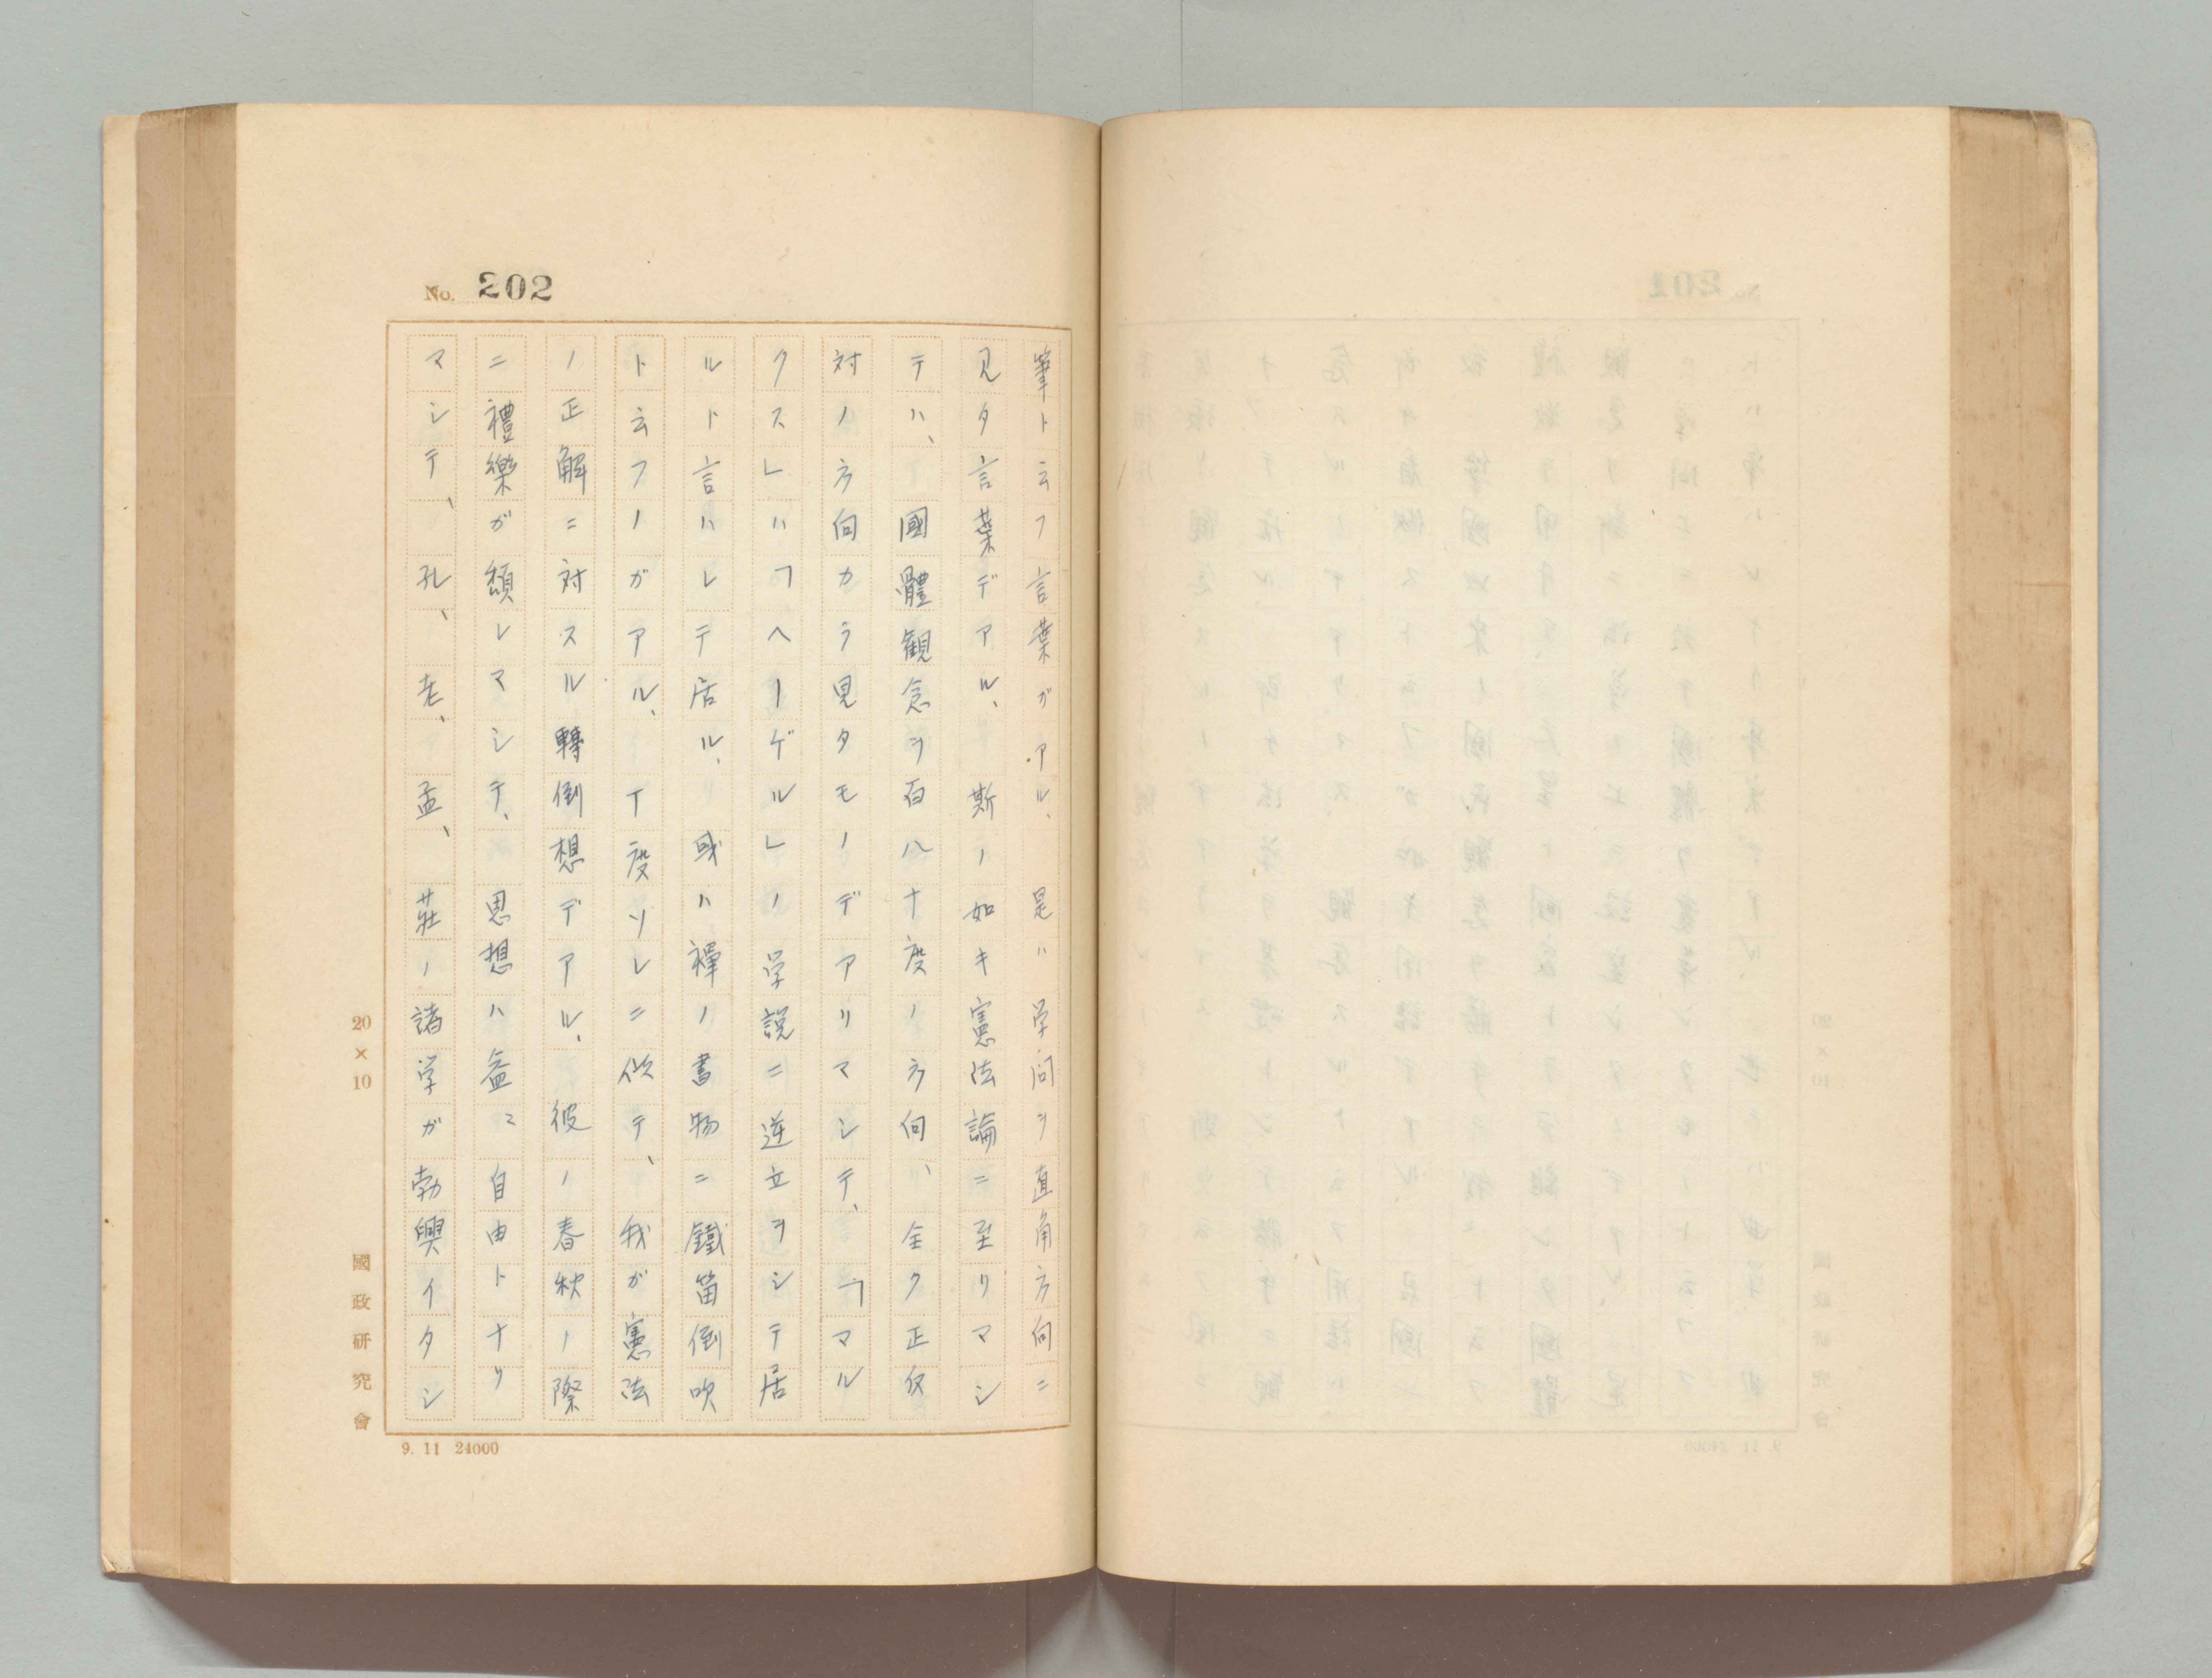 No. 202
筆ト云フ言葉ガアル、是ハ学問ヲ直角方向ニ
見タ言葉デアル、斯ノ如キ憲法論ニ至リマシ
テハ、國體観念ヲ百八十度ノ方向、全ク正反
対ノ方向カラ見タモノデアリマシテ、「マル
クス」ハ「ヘーゲル」ノ学説ニ逆立ヲシテ居
ルト言ハレテ居ル、或ハ禪ノ書物ニ鐵笛倒吹
ト云フノガアル、丁度ソレニ似テ、我ガ憲法
ノ正解ニ対スル轉倒想デアル、彼ノ春秋ノ際
ニ禮樂ガ頽レマシテ、思想ハ益々自由トナリ
マシテ、孔、老、孟、莊ノ諸学ガ勃興イタシ
20×10
國政研究會
9. 11 24000